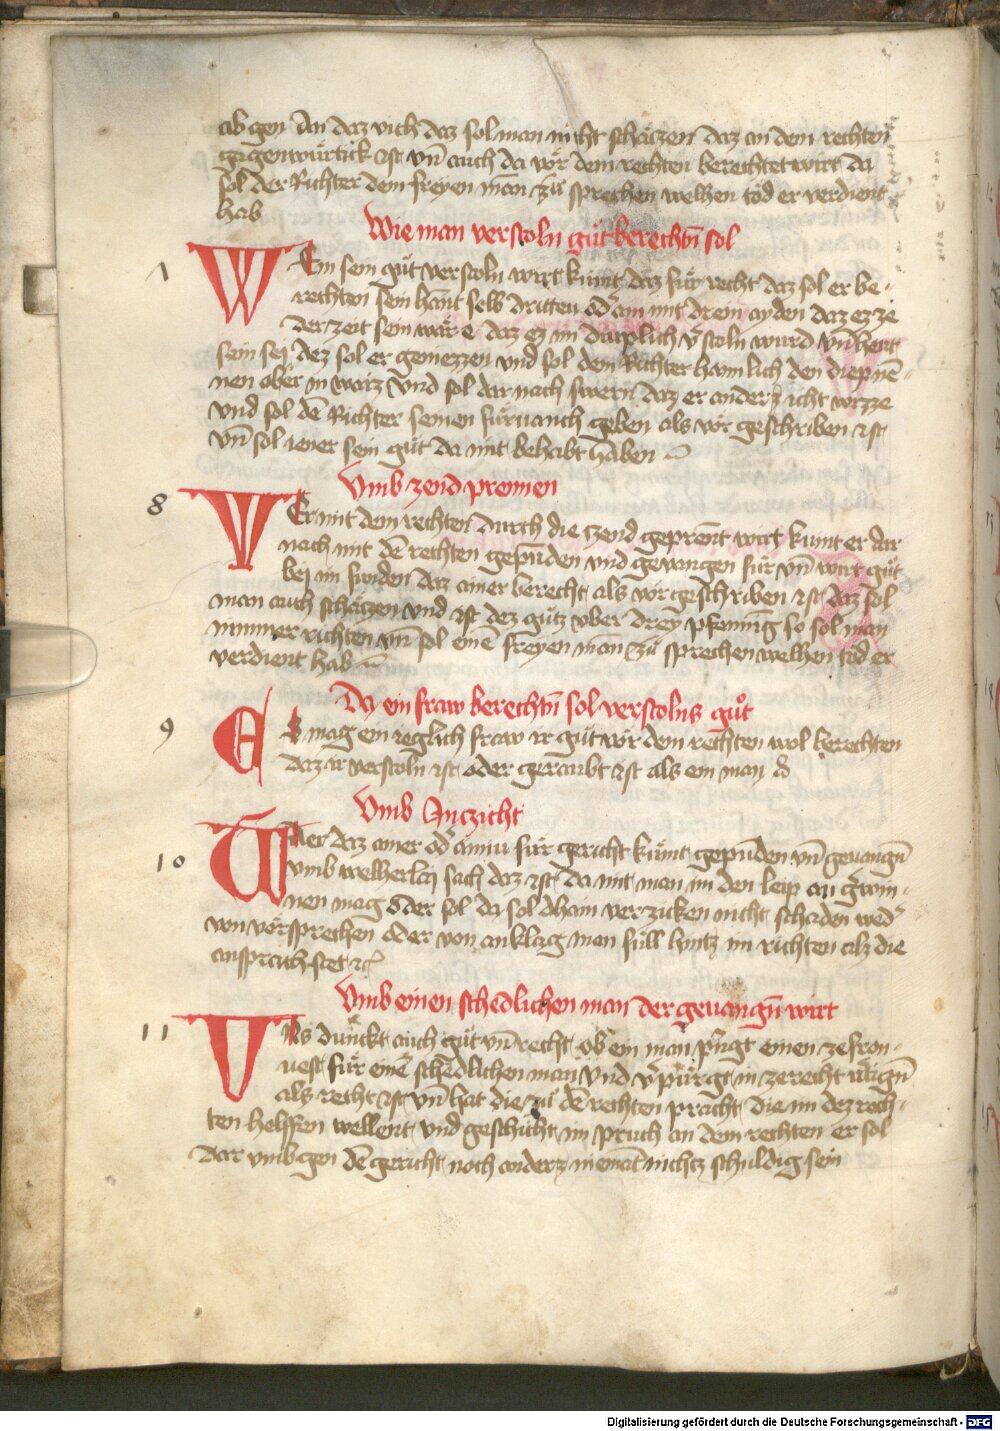 ab gen An daz vich daz sol man nicht schätzen daz an dem rechten
gagenwürtick ist vn̄ auch da vor dem rechten berechtet wirt da
sol der Richter dem freyen man zu sprechen welhen tod er verdient
hab
Wie man verstoln gůt berechtn̄ sol
1
Wem sein gůt verstoln wirt kumt daz für recht daz sol er be-
rechten sein hant selb dritten od' am mit drein ayden daz ez ze
der zeit sein wär e daz ez im düeplich v'stoln wurd vn̄ hewt
sein sej dez sol er geniezzen vnd sol dem Richter haimlich den diep nē-
nen ob er in waiz vnd sol dar nach swern daz er anderz icht wizze
vnd sol dē Richter seinen fürvanch geben als vor geschriben ist
vn̄ sol iener sein gůt da mit behabt haben
Vmb zend premen
8
Wer mit dem rechten durch die zend geprent wirt kumt er dar
nach mit dē rechten gepunden vnd gevangen für vn̄ wirt gůt
bej im funden daz ainer berecht als vor geschriben ist daz sol
man auch schätzen vnd ist dez gůtz vber drey pfenning so sol man
nimmer richten vn̄ sol einē freyen man zu sprechen welhen tod er
verdient hab
Dz ein fraw berechtn̄ sol verstolns gůt
9
Es mag ein ieglich fraw ir gůt vor dem rechten wol berechten
daz ir verstoln ist oder geraubt ist als ein man
Vmb Inzicht
10
Wer daz ainer od' ainiu für gericht kumt gepunden vn̄ gevangn̄
vmb welherlaj sach daz ist da mit man im den leip an g'win-
nen mag oder sol da sol dhain verzicken nicht schaden wed'
von vorsprechen oder von anklag men süll hintz im richten alz die
ansprach stet etc
Vmb einen schedlichen man der gevangn̄ wirt
11
Vns dunckt auch gůt vn̄ recht ob ein man pringt einen ze fron-
vest für einē schedlichen man vnd v'pürgt in ze recht
als recht ist vn̄ hat die zu dē rechten pracht die im dez rech-
ten helffen wellent vnd geschicht im pruch an dem rechten er sol
dar vmb gen dē gericht noch anderz niemāt nichtz schuldig sein
Digitalisierung gefördert durch die Deutsche Forschungsgemeinschaft - DFG